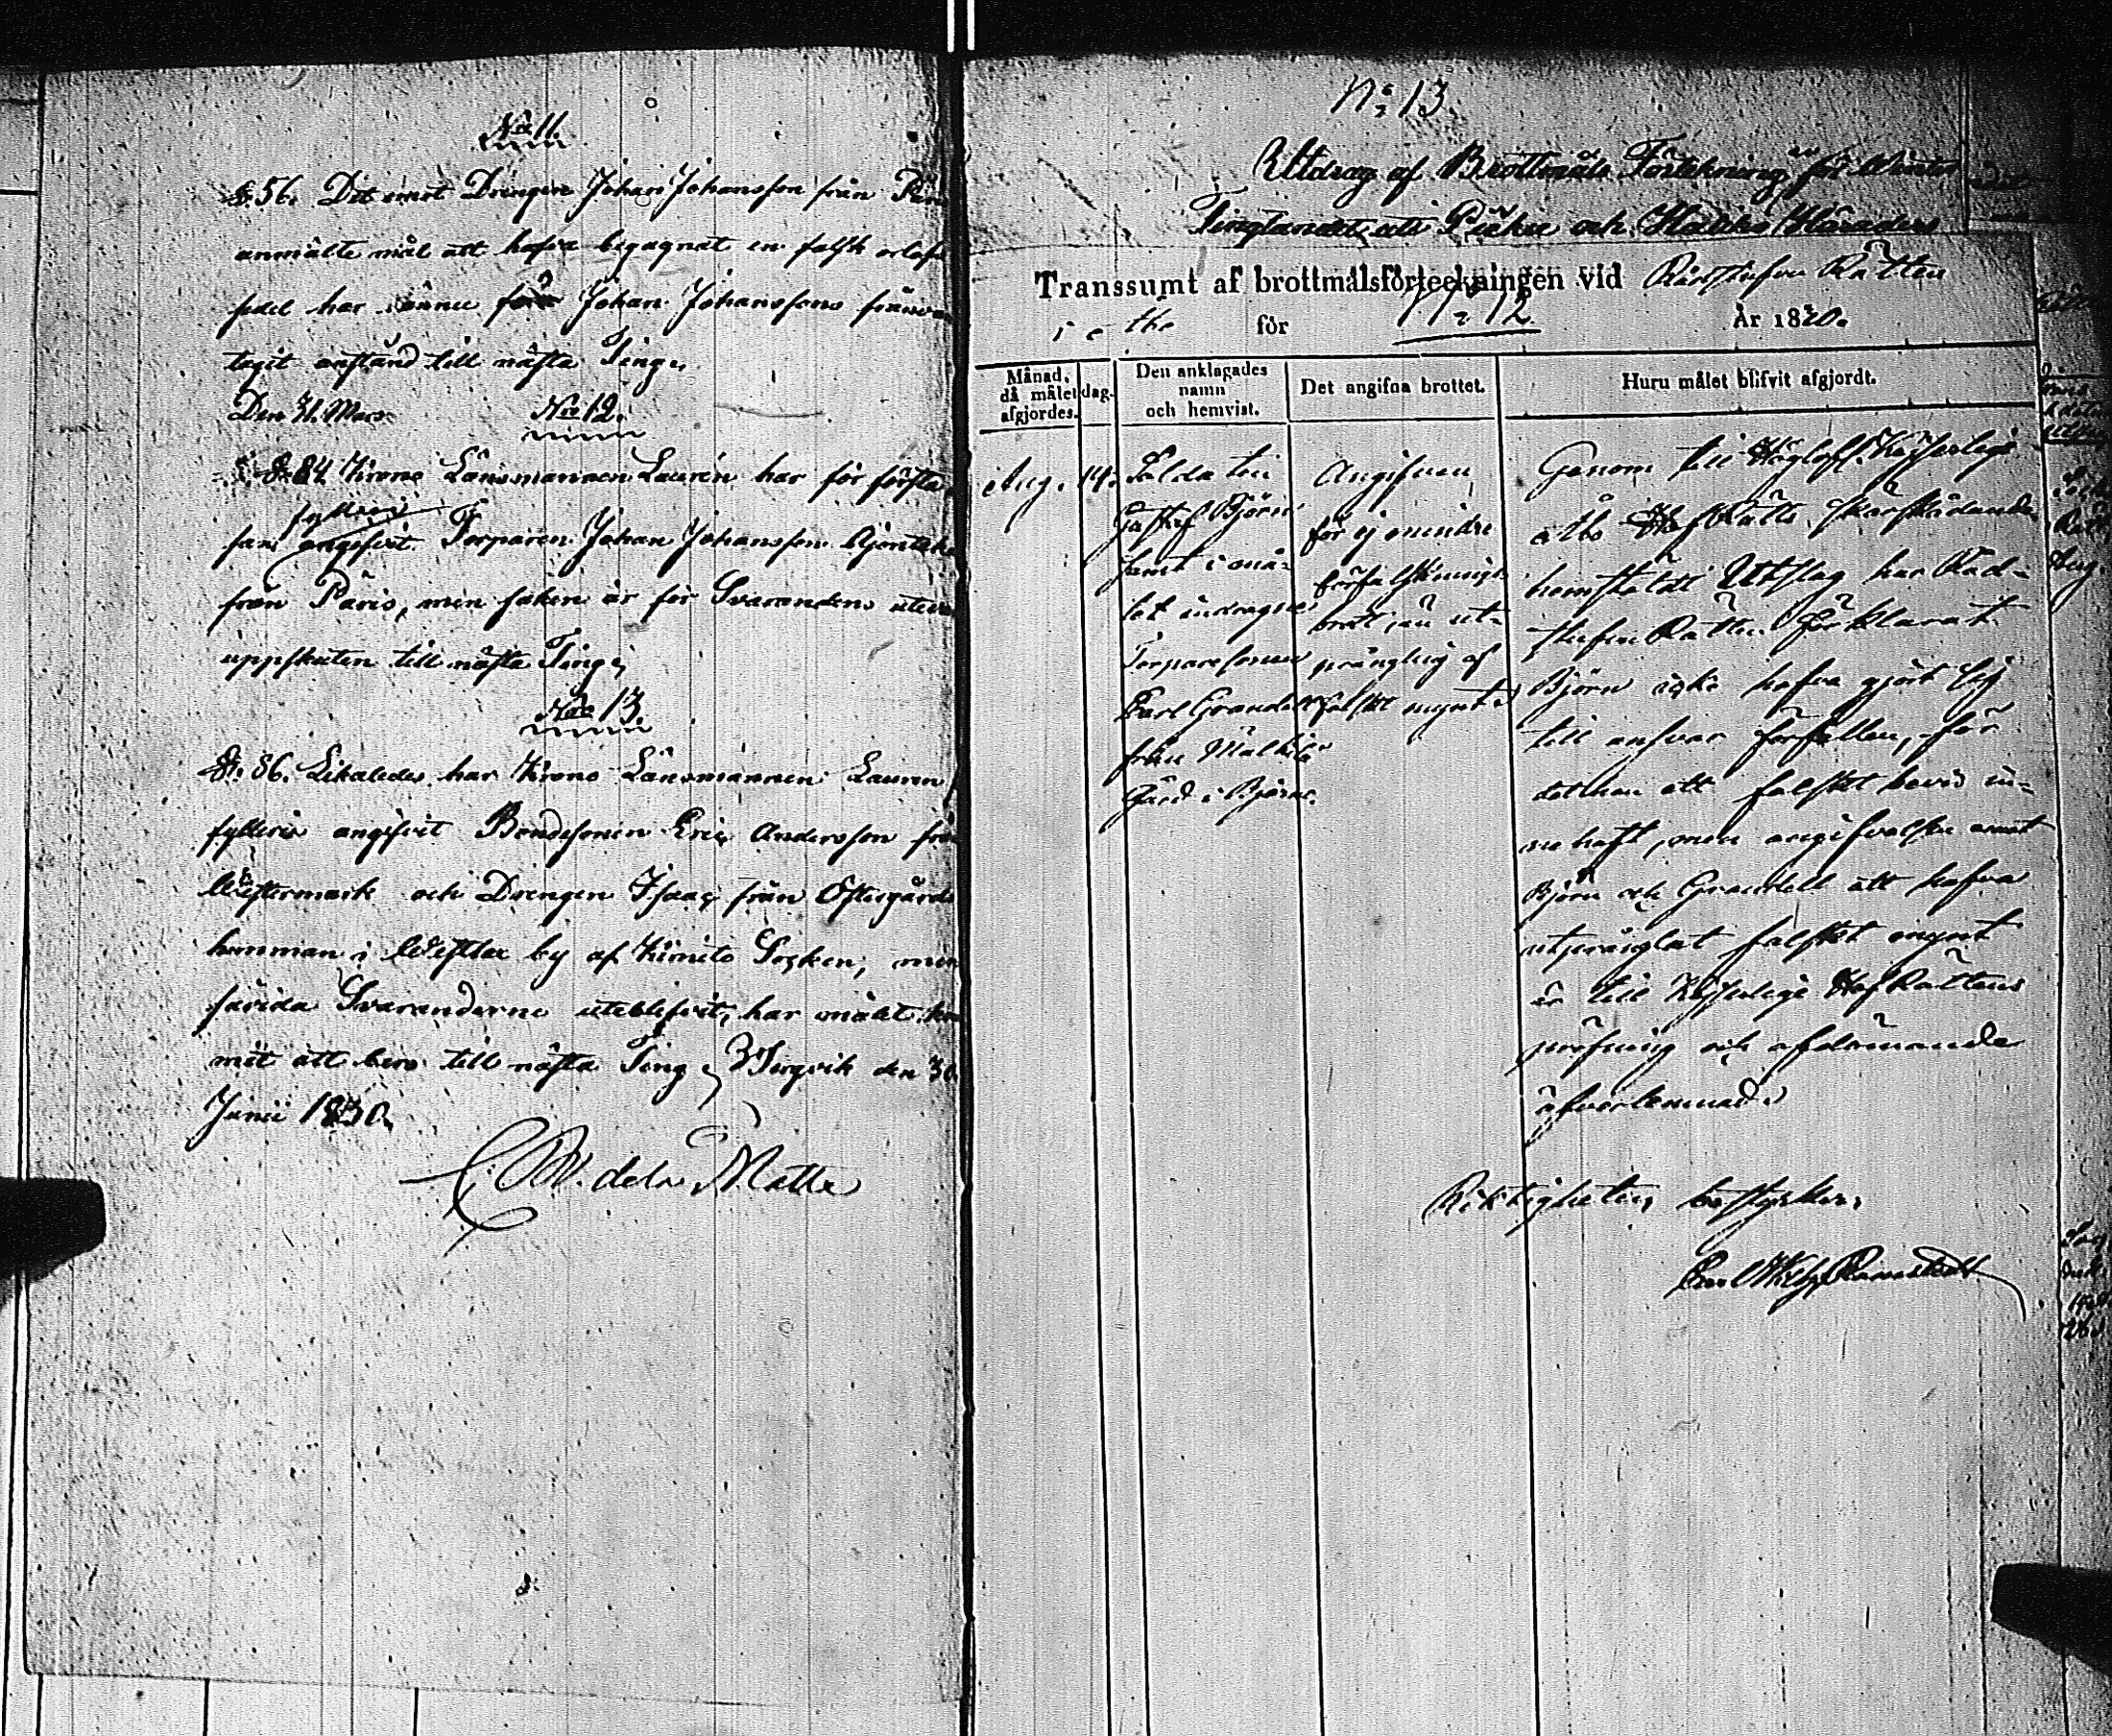 No 11.
§. 56. Det emot Drengen Johan Johansson från
anmälte mål att hafva begagnat en falsk orlofs
sedel har ännu för Johan Johanssons
tagit anstånd till nästa Ting.
Den 31. Mars.
No 12.
§. 84 Krono Länsmannen Laurén har för första
fylleri
angifvit Torparen Johan Johansson
från Päris, men saken är för Svarandens
uppskuten till nästa Ting.
No 13.
§. 86. Likaledes har Krono Länsmannen Lauren
fylleri angifvit Bondesonen Eric Andersson
Westermark och Drengen Isaac från Östergårds
hemman i by af Kimito Socken, men
Svaranderne uteblifvit, har målet
mit att bero till nästa Ting. den 30.
Junii 1830.
C. W. de la Motte
No 13
Utdrag af Brottmåls Förtekning för Winter
Tingtandet uti Piikie och Halikko Härader
Transsumt af brottmålsförteckningen vid Rådstufvu Rätten
i för No 12 År 1830.
Månad, då målet afgjordes.
dag.
Den anklagades namn och hemvist.
Det angifna brottet.
Huru målet blifvit afgjordt.
Aug. 14.
Soldaten
Gustaf Björn
samt i må-
let indragne
Torparesonen
Carl Grandell
från
Gård i Bjerno.
Angifven
för ej mindre
förfalsknings
brott, än ut-
prångling af
falskt mynt.
Genom till Högloflige Kejserlige
Åbo HofRätts skärskådande
hemstäldt Utslag har Råd-
stufvu Rätten förklarat
Björn icke hafva gjort sig
till answar förfallen, för
det han ett falskt bevis in-
nehaft, men angifvelsen emot
Björn och Grandell att hafva
utprånglat falskt mynt
är till Kejserlige HofRättens
pröfning och afdömande
öfverlemnad.
Riktigheten bestyrker,